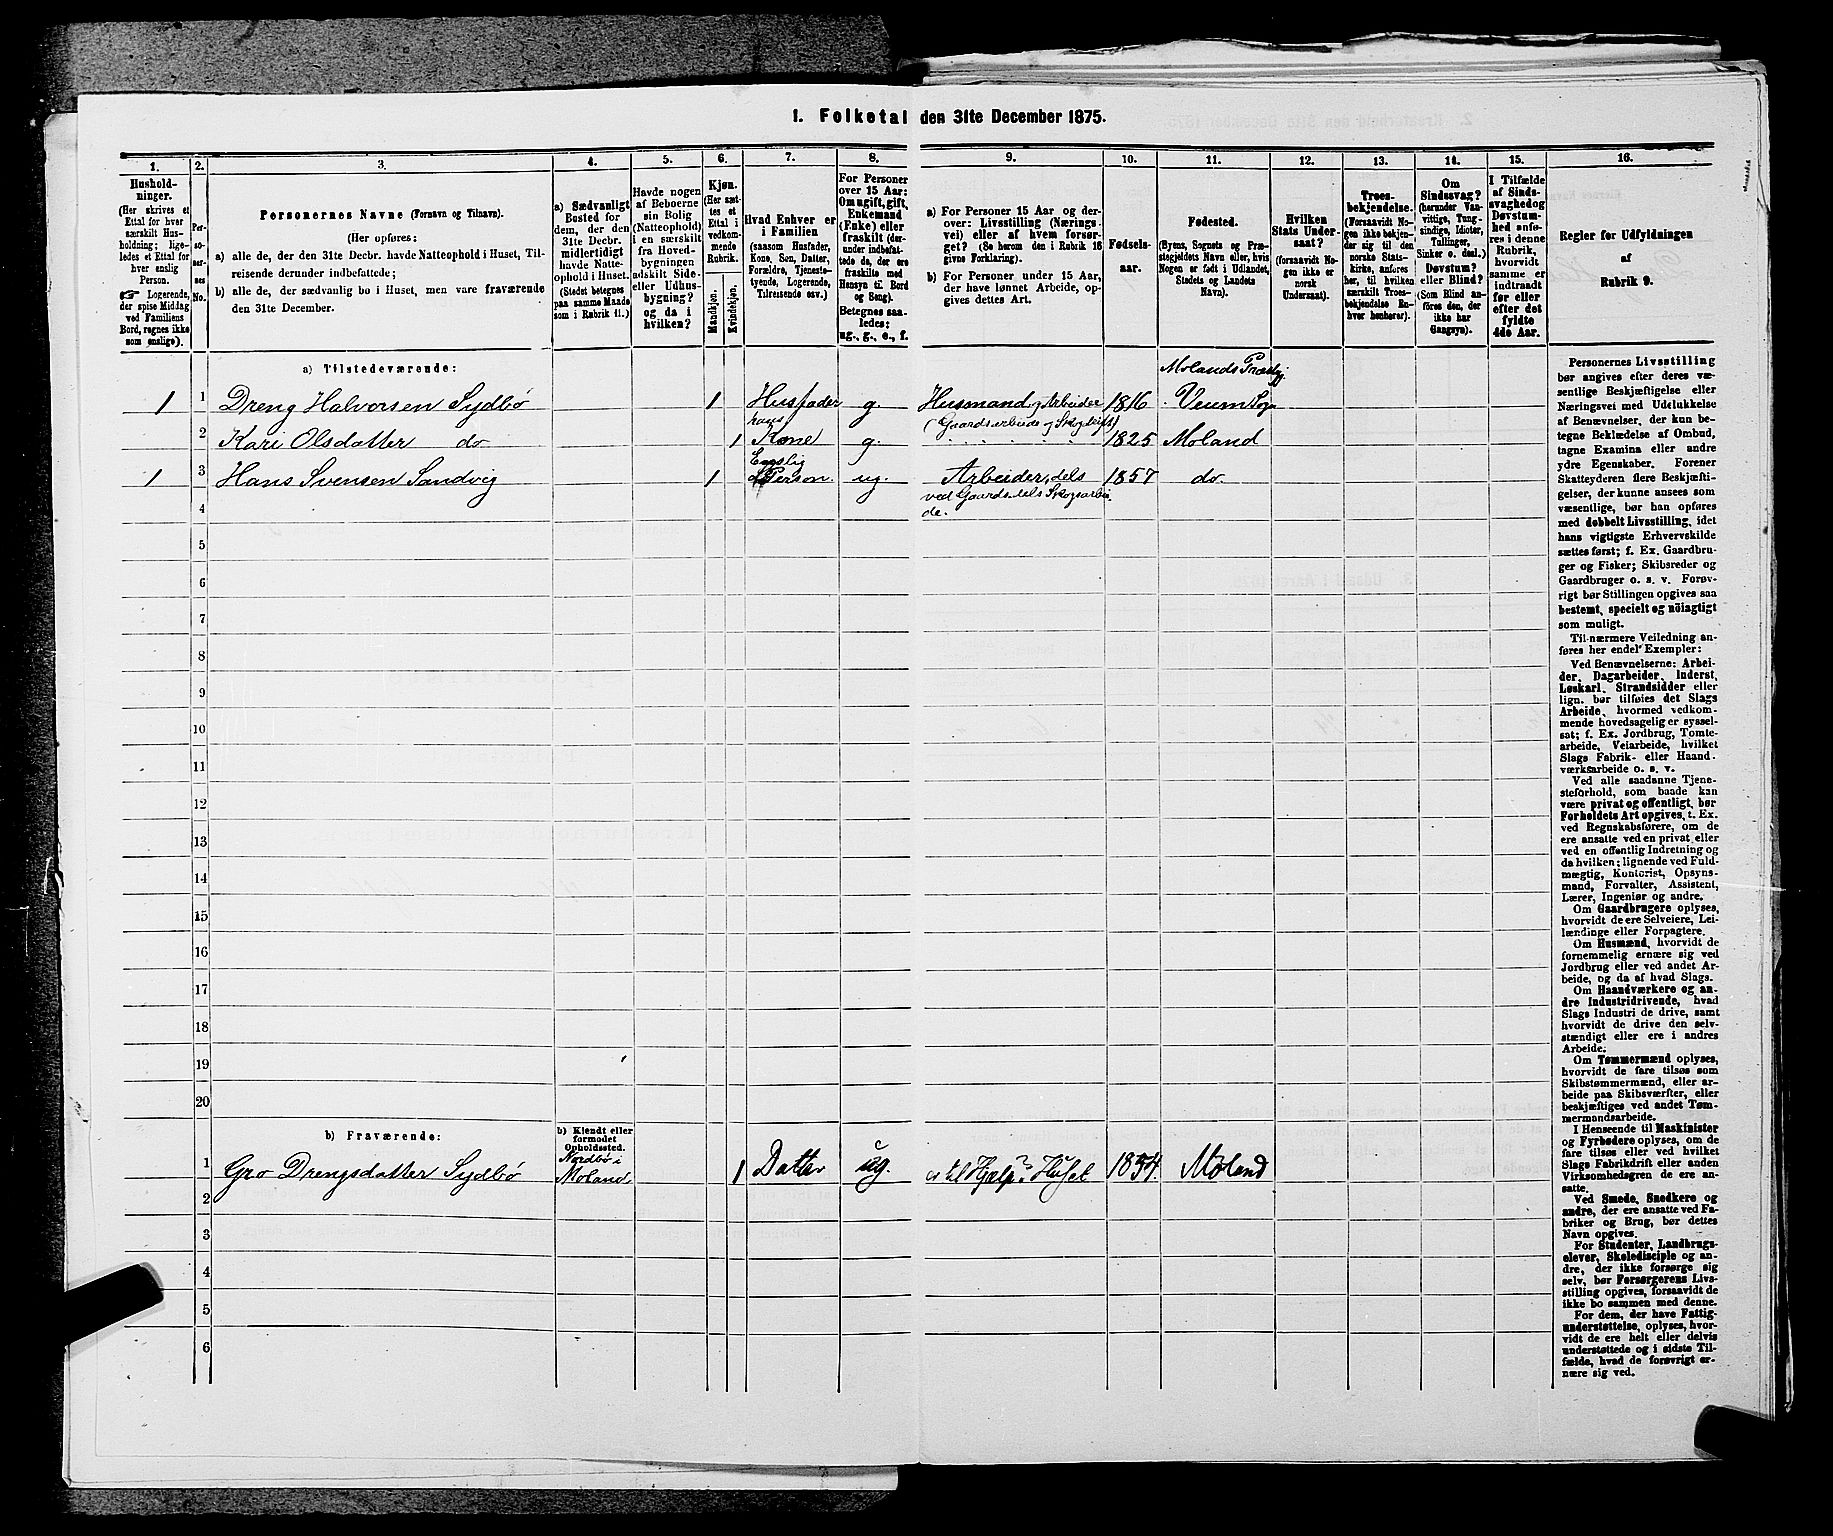 1. Folketal den 31te December 1875.
1. 2. 3. 4. 5. 6. 7. 8. 9. 10. 11. 12. 13. 14. 15. 16.
Hushold-
ninger.
(Her skrives et
Ettal for hver
særskilt Hus-
holdning; lige-
ledes et Ettal for
hver enslig
Person.
☞ Logerende,
der spise Middag
ved Familiens
Bord, regnes ikke
som enslige).
Per-
so-
ner-
nes
No.
Personernes Navne (Fornavn og Tilnavn).
(Her opføres:
a) alle de, der den 31te Decbr. havde Natteophold i Huset, Til-
reisende derunder indbefattede;
b) alle de, der sædvanlig bo i Huset, men vare fraværende
den 31te December.
a) Sædvanligt
Bosted for
dem, der den
31te Decbr.
midlertidigt
havde Natte-
ophold i Huset.
(Stedet betegnes
paa samme Maade
som i Rubrik 11.)
Havde nogen
af Beboerne
sin Bolig
(Natteophold)
i en særskilt
fra Hoved-
bygningen
adskilt Side-
eller Udhus-
bygning?
og da i
hvilken?
Kjøn.
(Her sæt-
tes et
Ettal i
vedkom-
mende
Rubrik.
Mandkjøn.
Kvindekjøn.
Hvad Enhver er
i Familien
(saasom Husfader,
Kone, Søn, Datter,
Forældre, Tjeneste-
tyende, Logerende,
Tilreisende osv.)
For Personer
over 15 Aar:
Om ugift, gift,
Enkemand
(Enke) eller
fraskilt (der-
under indbefat-
tede de, der ere
fraskilte med
Hensyn til Bord
og Seng).
Betegnes saa-
ledes:
ug., g., e., f.
a) For Personer 15 Aar og der-
over: Livsstilling (Nærings-
vei) eller af hvem forsør-
get? (Se herom den i Rubrik 16
givne Forklaring).
b) For Personer under 15 Aar,
der have lønnet Arbeide, op-
gives dettes Art.
Fødsels-
aar.
Fødested.
(Byens, Sognets og Præ-
stegjeldets Navn eller, hvis
Nogen er født i Udlandet,
Stedets og Landets
Navn).
Hvilken
Stats Under-
saat?
(forsaavidt No-
gen ikke er
norsk
Undersaat).
Troes-
bekjendelse.
(Forsaavidt No-
gen ikke bekjen-
der sig til den
norske Stats-
kirke, anføres
her, til hvilken
særskilt Troes-
bekjendelse En-
hver henhører).
Om
Sindssvag?
(herunder Van-
vittige, Tung-
sindige, Idioter,
Tullinger,
Sinker o. desl.)
Døvstum?
eller Blind?
(Som Blind an-
føres den, der
ikke har
Gangsyn).
I Tilfælde
af Sinds-
svaghed og
Døvstum-
hed anfø-
res i denne
Rubrik,
hvorvidt
samme er
indtraadt
før eller
efter det
fyldte
4de Aar.
Regler for Udfyldningen
af
Rubrik 9.
a) Tilstedeværende:
Molands Præstgj.
1 1 Dreng Halvorsen Sydbø 1 Husfader g. Husmand og Arbeider 1816 Veum Sogn
hans (Gaardsarbeide og Skogdrift)
2 Kari Olsdatter do 1 Kone g. 1825 Moland
Enslig
1 3 Hans Svensen Sandvig 1 Person. ug. Arbeider, dels 1857 do.
ved Gaards- dels Skogsarbei-
de.
4
5
6
7
8
9
10
11
12
13
14
15
16
17
18
19
20
b) Fraværende:
b) Kjendt eller
formodet
Opholdssted.
Nordbø i
1 Gro Drengsdatter Sydbø Moland 1 Datter ug. er til Hjælp i Huset 1854. Moland
2
3
4
5
6
Personernes Livsstilling
bør angives efter deres væ-
sentlige Beskjæftigelse eller
Næringsvei med Udelukkelse
af Benævnelser, der kun be-
tegne Beklædelse af Ombud,
tagne Examina eller andre
ydre Egenskaber. Forener
Skatteyderen flere Beskjæfti-
gelser, der kunne ansees som
væsentlige, bør han opføres
med dobbelt Livsstilling, idet
hans vigtigste Erhvervskilde
sættes først; f. Ex. Gaardbru-
ger og Fisker; Skibsreder og
Gaardbruger o. s. v. Forøv-
rigt bør Stillingen opgives saa
bestemt, specielt og nöiagtigt
som muligt.
Til nærmere Veiledning an-
føres her endel Exempler:
Ved Benævnelserne: Arbei-
der, Dagarbeider, Inderst,
Løskarl, Strandsidder eller
lign. bør tilføies det Slags
Arbeide, hvormed vedkom-
mende hovedsagelig er syssel-
sat; f. Ex. Jordbrug, Tomte-
arbeide, Veiarbeide, hvilket
Slags Fabrik- eller Haand-
værksarbeide o. s. v.
Ved alle saadanne Tjene-
steforhold, som baade kan
være privat og offentligt, bør
Forholdets Art opgives, t. Ex.
ved Regnskabsførere, om de
ere ansatte ved en privat eller
ved en offentlig Indretning og
da hvilken; lignende ved Fuld-
mægtig, Kontorist, Opsyns-
mand, Forvalter, Assistent,
Lærer, Ingeniør og andre.
Om Gaardbrugere oplyses,
hvorvidt de ere Selveiere, Lei-
lændinge eller Forpagtere.
Om Husmænd, hvorvidt de
fornemmelig ernære sig ved
Jordbrug eller ved andet Ar-
beide, og da af hvad Slags.
Om Haandværkere og an-
dre Industridrivende, hvad
Slags Industri de drive, samt
hvorvidt de drive den selv-
stændigt eller ere i andres
Arbeide.
Om Tømmermænd oplyses,
hvorvidt de fare tilsøs som
Skibstømmermænd, eller ar-
beide paa Skibsværfter, eller
beskjæftiges ved andet Tøm-
mermandsarbeide.
I Henseende til Maskinister
og Fyrbødere oplyses, om de
fare tilsøs eller ved hvilket
Slags Fabrikdrift eller anden
Virksomhedsgren de ere an-
satte.
Ved Smede, Snedkere og
andre, der ere ansatte ved Fa-
briker og Brug, bør dettes
Navn opgives.
For Studenter, Landbrugs-
elever, Skoledisciple og an-
dre, der ikke forsørge sig
selv, bør Forsørgerens Livs-
stilling opgives, forsaavidt de
ikke bo sammen med denne.
For dem, der have Fattig-
understøttelse, oplyses, hvor-
vidt de ere helt eller delvis
understøttede og i sidste Til-
fælde, hvad de forøvrigt er-
nære sig ved.